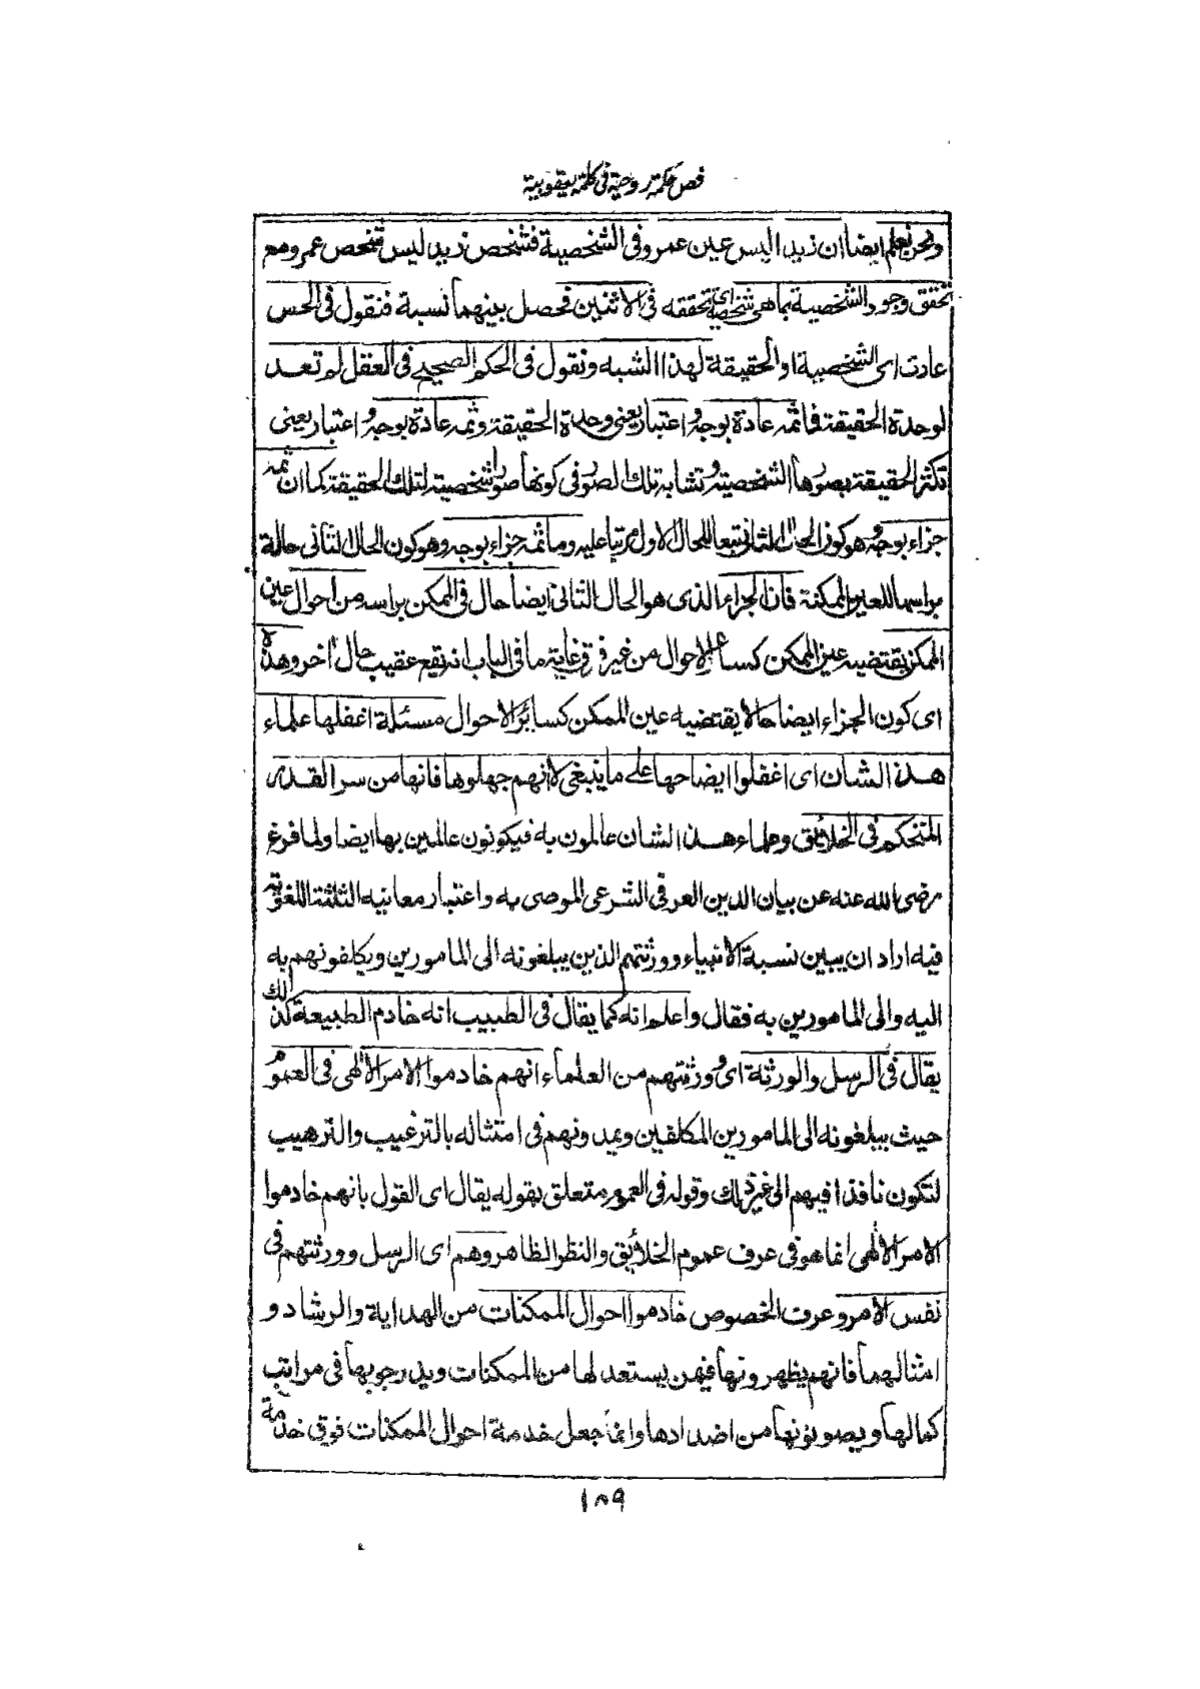 فص حكمة روحية في كلمة يعقوبية
ونحن نعلم ايضا ان زيدا ليس عين عمرو فى الشخصية فتشخص زيد ليس تشخص عمرو مع
تحقق وجود الشخصية بما هى شخصية اى تحققه فى الاثنين فحصل بينهما نسبة فنقول فى الحس
عادت اى الشخصية او الحقيقة لهذا الشبه ونقول فى الحكم الصحيح فى العقل لم تعد
لوحدة الحقيقة فما ثمه عادة بوجه و اعتبار يعنى وحدة الحقيقة وثمه عادة بوجه و اعتبار يعنى
تكثر الحقيقة بصورها الشخصية وتشابه تلك الصور فى كونها صورا شخصية لتلك الحقيقة كما ان ثمه
جزاء بوجه و هو كون الحال الثانى تبعا للحال الاول مرتبا عليه وما ثمه جزاء بوجه وهو كون الحال الثانى حالة
براسها للعين الممكنة فان الجزاء الذى هو الحال الثانى ايضا حال فى الممكن براسه من احوال عين
الممكن يقتضيه عين الممكن كسائر الاحوال من غير فرق غاية ما فى الباب انه يقع عقيب حال اخر وهذه
اى كون الجزاء ايضا حالا يقتضيه عين الممكن كسائر الاحوال مسئلة اغفلها علماء
هذا الشان اى اغفلوا ايضاحها على ما ينبغى لا انهم جهلوها فانها من سر القدر
المتحكم فى الخلائق وعلماء هذا الشان عالمون به فيكونون عالمين بها ايضا ولما فرغ
رضى الله عنه عن بيان الدين العرفى الشرعى الموصى به واعتبار معانيه الثلثة اللغوية
فيه اراد ان يبين نسبة الانبياء وورثتهم الذين يبلغونه الى المامورين ويكلفونهم به
اليه والى المامورين به فقال واعلم انه كما يقال فى الطبيب انه خادم الطبيعة كذلك
يقال فى الرسل والورثة اى ورثتهم من العلماء انهم خادموا الامر الالهى فى العموم
حيث يبلغونه الى المامورين المكلفين ويمدونهم فى امتثاله بالترغيب والترهيب
لتكون نافذا فيهم الى غير ذلك وقوله فى العموم متعلق بقوله يقال اى القول بانهم خادموا
الامر الالهى انما هو فى عرف عموم الخلائق والنظر الظاهر وهم اى الرسل وورثتهم فى
نفس الامر وعرف الخصوص خادموا احوال الممكنات من الهداية والرشاد و
امثالهما فانهم يظهرونها فيمن يستعد لها من الممكنات ويدرجو بها فى مراتب
كمالها ويصونونها من اضدادها وانما جعل خدمة احوال الممكنات فوق خدمة
١٨٩